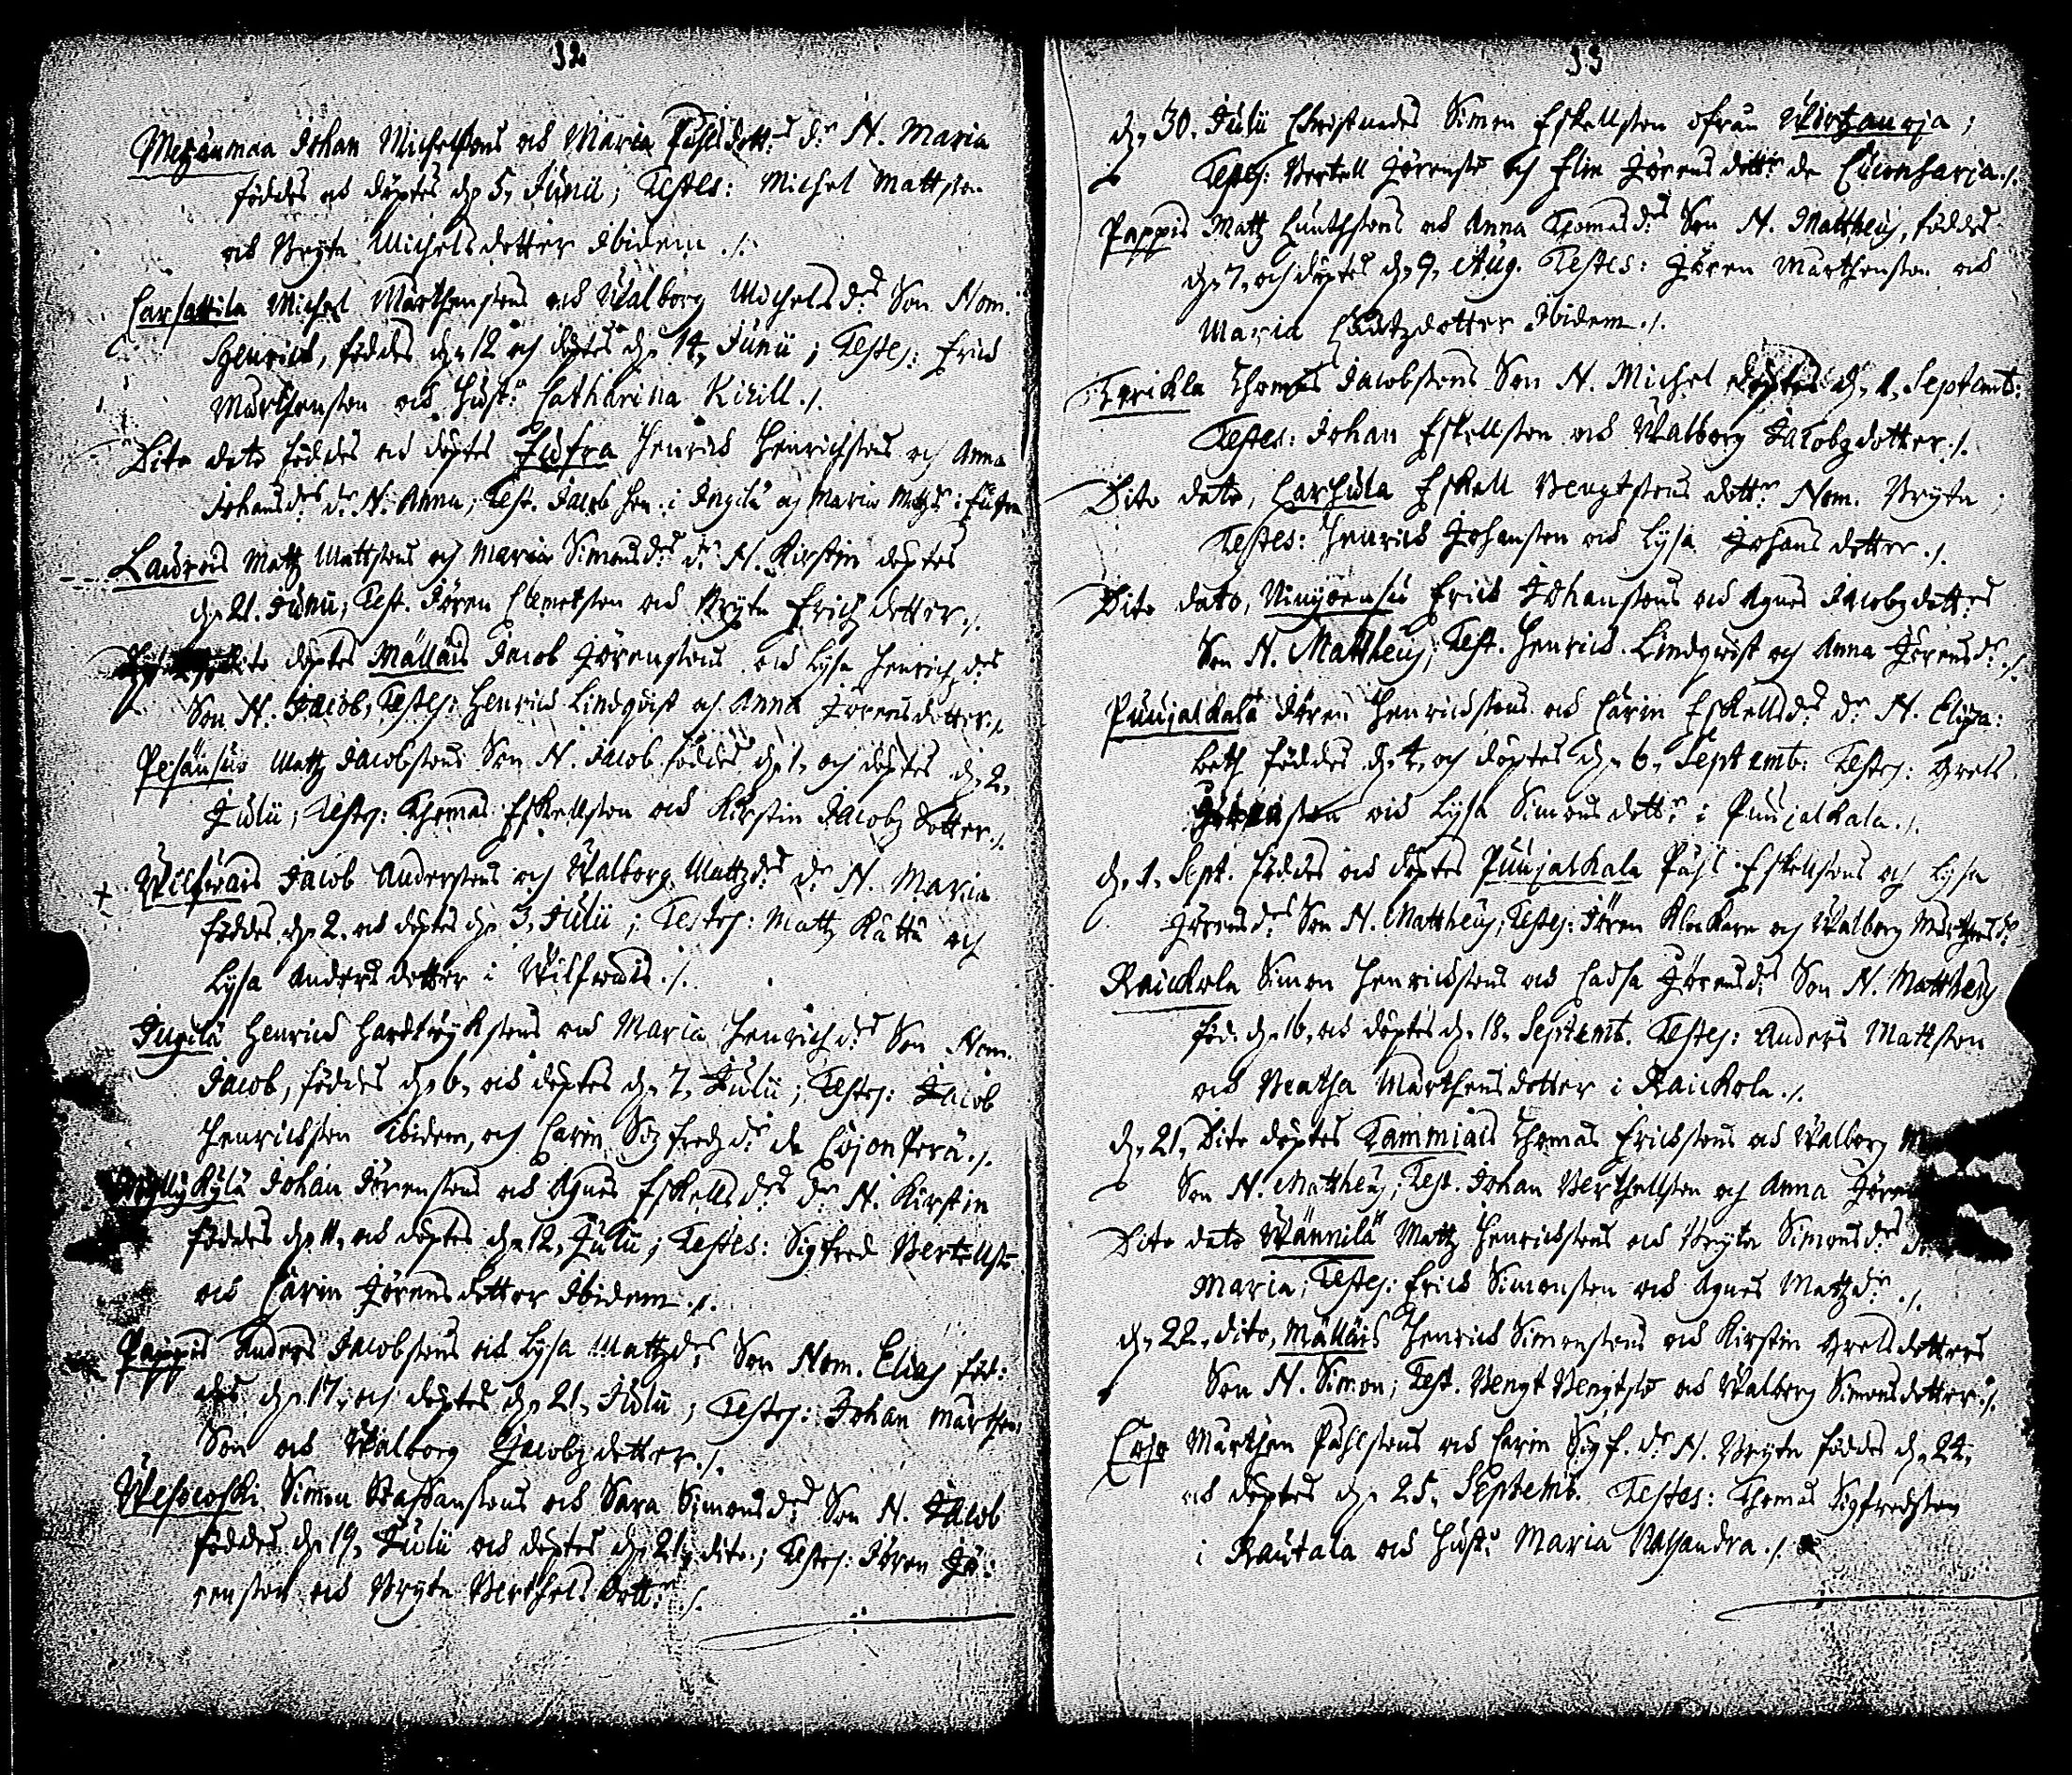 32
Mezänmaa Johan Michelssons och Maria Påhlsdotters dr N. Maria
föddes och döptes d. 5. Junii; Testes: Michel Mattsson
och Bryta Michelsdotter Ibidem ./.
Carsattila Michel Mårthenssons och Walborg Michelsdrs Son Nom.
Henrich, föddes d. 12 och döptes d. 14. Junii; Testes: Erich
Mårthensson och Hustr Catharina Kirill ./.
Dito dato föddes och döptes Eufra Henrich Henrichssons och Anna
Johansdrs dr N. Anna; Test. Jacob Hen. i Ingilä och Maria Matzdr i Eufra
Laurois Matz Mattssons och Maria Simonsdrs dr N. Kirstin döptes
d. 21. Junii; Test. Jören Clemetsson och Bryta Erichsdotter ./.
dito döptes Mälläis Jacob Jörenssons och Lysa Henrichsdrs
Son N. Jacob, Testes: Henrich Lindqvist och Anna Jörensdotter ./.
Pesänsuo Matz Jacobssons Son N. Jacob föddes d. 1. och döptes d. 2.
Julii; Testes: Thomas Eskellsson och Kirstin Jacobzdotter ./.
Wilfwais Jacob Anderssons och Walborg Matzdrs dr N. Maria
föddes d. 2. och döptes d. 3. Julii; Testes: Matz Kåttu och
Lysa Andersdotter i Wilfwais ./.
Ingilä Henrich Hardwykssons och Maria Henrichdrs Son Nom.
Jacob, föddes d. 6. och döptes d. 7. Julii; Testes: Jacob
Henrichsson Ibidem, och Carin Sigfredzdr de Cojonperä ./.
Myllykylä Johan Jörenssons och Agnes Eskellsdrs dr N. Kirstin
föddes d. 11. och döptes d. 12. Julii; Testes: Sigfred Bertellsso
och Carin Jörensdotter Ibidem ./.
Pappis Anders Jacobssons och Lysa Matzdrs Son Nom. Elias föd:
des d. 17. och döptes d. 21. Julii; Testes: Johan Mårthens
Son och Walborg Jacobzdotter ./.
Wesicoski Simon Staffanssons och Sara Simonsdrs Son N. Jacob
föddes d. 19. Julii och döptes d. 21. dito; Testes: Jören Jö:
rensson och Bryta Berthelsdotter ./.
33
d. 30. Julii Christnades Simon Eskellsson ifrån Wirtzanoja;
Testes: Bertell Jörensso och Elin Jörensdottr de Cuconharja ./.
Pappis Matz Knuthssons och Anna Thomasdrs Son N. Mattheus, föddes
d. 7. och döptes d. 9. Aug. Testes: Jören Mårthensson och
Maria Knutzdotter Ibidem ./.
Terickla Thomas Jacobssons Son N. Michel döptes d. 1. Septemb:
Testes: Johan Eskellsson och Walborg Jacobzdotter ./.
Dito dato, Carhula Eskell Bengtssons dottr Nom. Bryta
Testes: Henrich Johansson och Lysa Johansdotter ./.
Dito dato, Ninjoensuu Erich Johanssons och Agnes Jacobzdottrs
Son N. Mattheus; Test. Henrich Lindqwist och Anna Jörensdr ./.
Puujalkala Jören Henrichssons och Carin Eskellsdrs dr N. Eliza:
beth föddes d. 4. och döptes d. 6. Septemb: Testes: Grels
Jörensson och Lysa Simonsdottr i Puujalkala ./.
d. 1. Sept. föddes och döptes Puujalkala Påhl Eskellssons och Lysa
Jörensdrs Son N. Mattheus; Testes: Jören Klockare och Walborg Mårthensdr
Raickola Simon Henrichssons och Cadsa Jörensdrs Son N. Mattheus
föd. d. 16. och döptes d. 18. Septemb. Testes: Anders Mattsson
och Beatha Mårthensdotter i Raickola ./.
d. 21. Dito döptes Tammiais Thomas Erichssons och Walborg
Son N. Mattheus; Test. Johan Berthellsson och Anna Jören
Dito dato Wännilä Matz Henrichssons och Bryta Simonsdrs
Maria; Testes: Erich Simonsson och Agnes Matzdr ./.
d. 22. dito, Mälläis Henrich Simonssons och Kirstin Grelsdotters
Son N. Simon; Test. Bengt Bengtsso och Walborg Simonsdotter ./.
Cojo Mårthen Påhlssons och Carin Sigf. dr N. Bryta föddes d. 24.
och döptes d. 25. Septemb. Testes: Thomas Sigfredsson
i Rautala och Hustr Maria Cassandra ./.